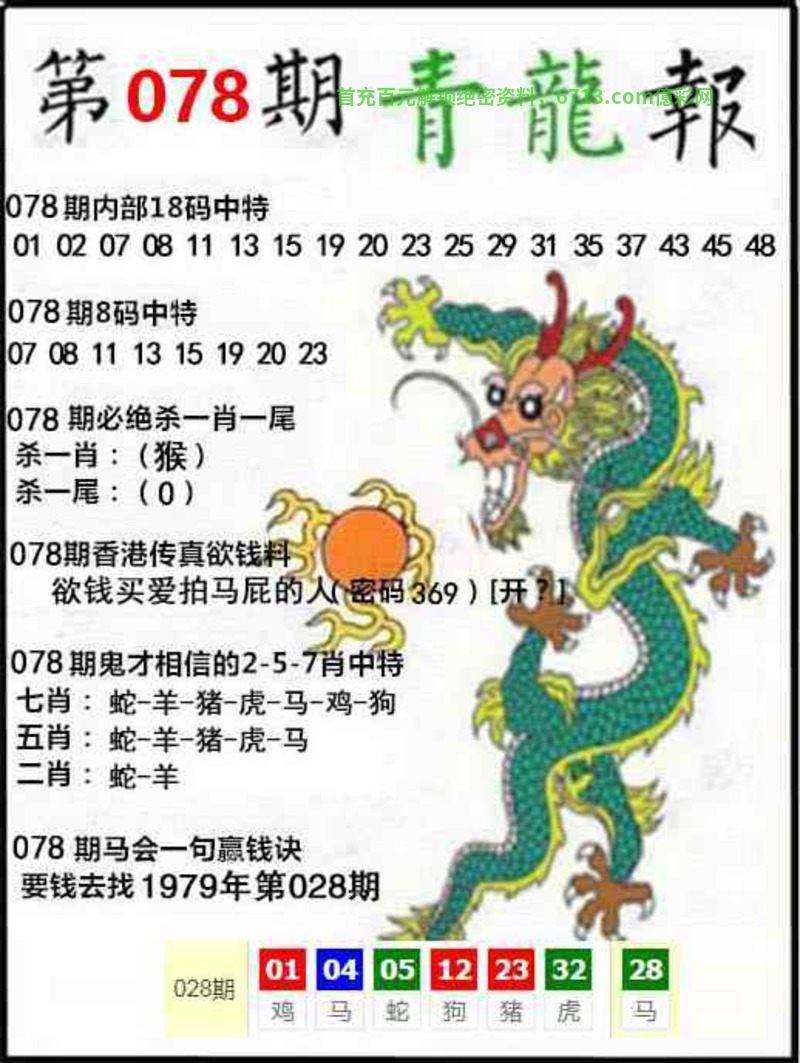 第078期青龍報
首充百元解锁绝密资料：6713.com億彩网
078期内部18码中特
01 02 07 08 11 13 15 19 20 23 25 29 31 35 37 43 45 48
078期8码中特
07 08 11 13 15 19 20 23
078 期必绝杀一肖一尾
杀一肖：（猴）
杀一尾：（0）
078期香港传真欲钱料
欲钱买爱拍马屁的人(密码369）[开？]
078期鬼才相信的2-5-7肖中特
七肖：蛇-羊-猪-虎-马-鸡-狗
五肖：蛇-羊-猪-虎-马
二肖：蛇-羊
078 期马会一句赢钱诀
要钱去找1979年第028期
028期 01 04 05 12 23 32 28
鸡 马 蛇 狗 猪 虎 马